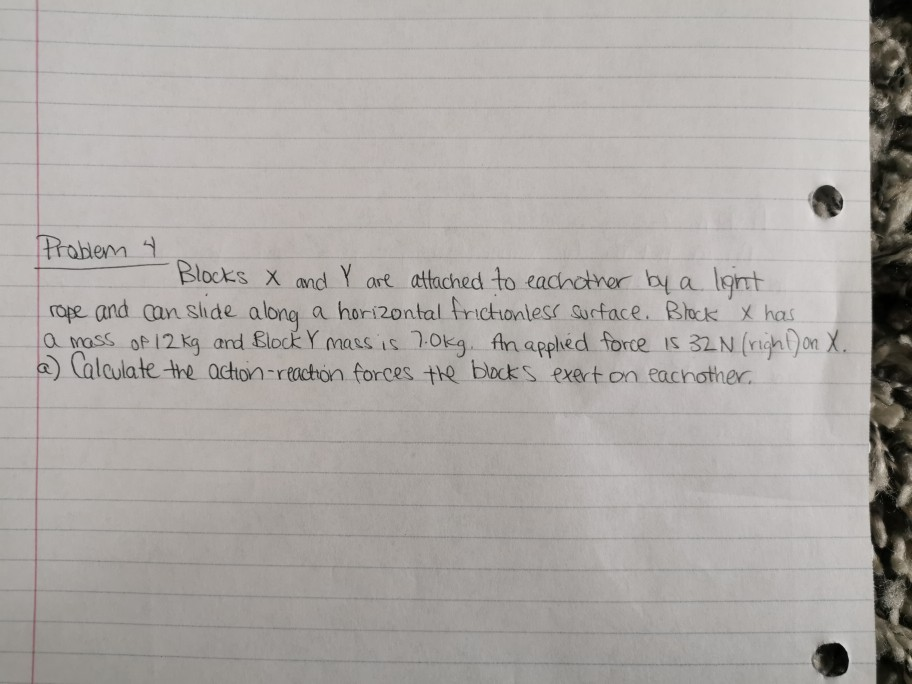 Problem 4
Blocks X and Y are attached to eachother by a light
rope and can slide along a horizontal frictionless surface. Block X has
a mass of 12 kg and Block Y mass is 7.0kg. An applied force is 32 N (right) on X.
a) Calculate the action-reaction forces the blocks exert on eachother.